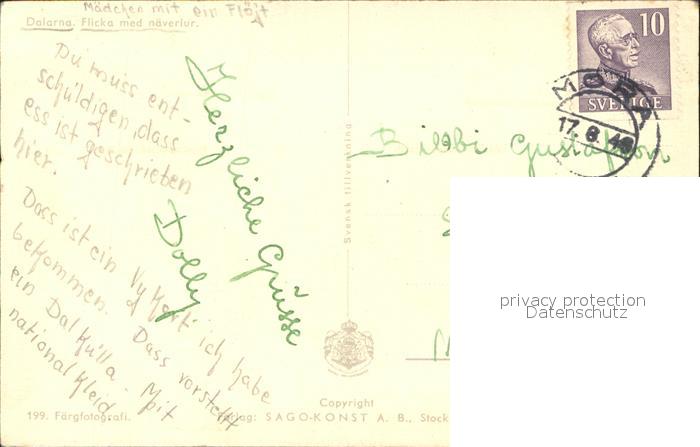 Mädchen mit ein Flöjt
Dalarna. Flicka med näverlur.
Du muss ent-
schüldigen, dass
ess ist geschrieben
hier.
Dass ist ein Vykort ich habe
bekommen. Dass vorstellt
ein Dalkulla. Mit
nationalkleid
Herzliche Grüsse
Dolly
10
SVERIGE
MORA
17.8.46
Bibbi Gustafson
Svensk tillverkning
privacy protection
Datenschutz
Copyright
199. Färgfotografi.
Förlag: SAGO-KONST A. B., Stock